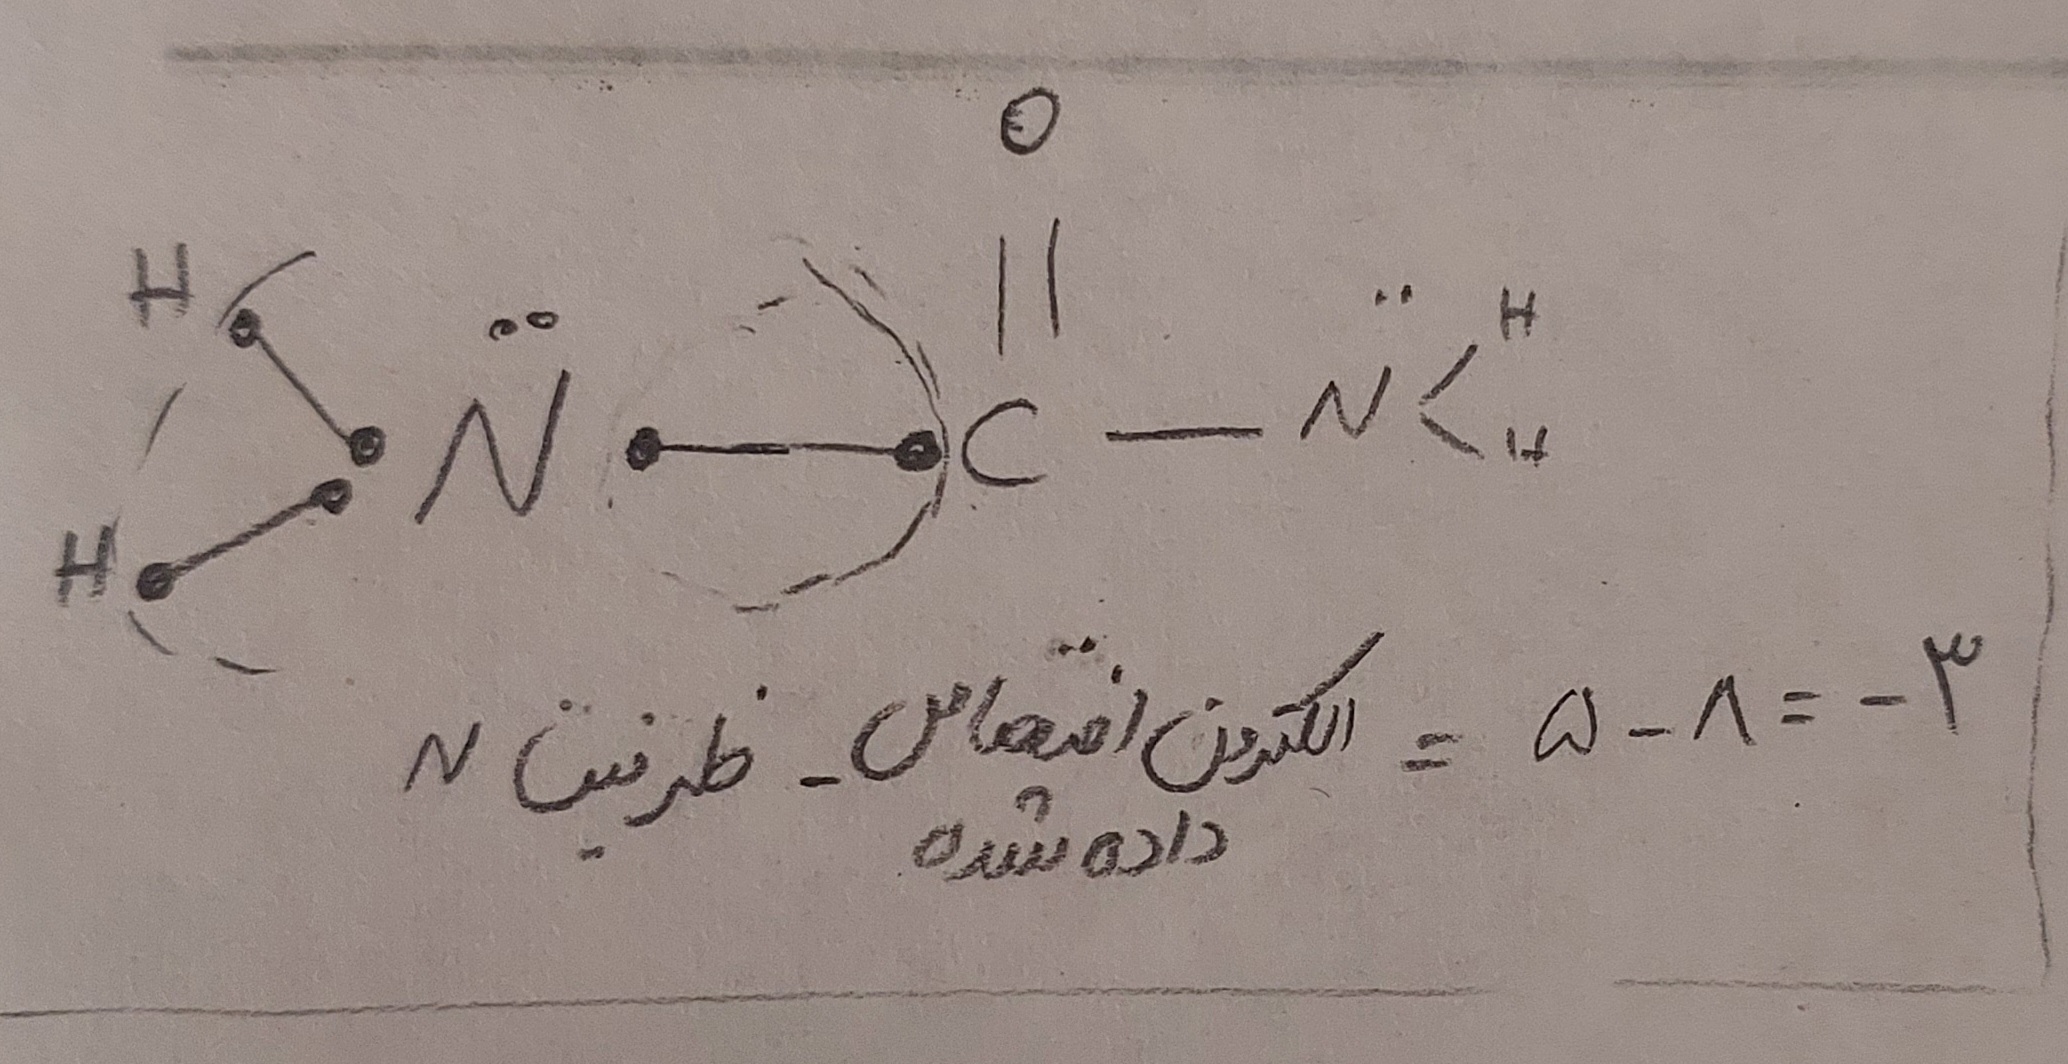 O
H N C N H
H H
N ظرفیت - الکترون اختصاص = ۵ - ۸ = -۳
داده شده